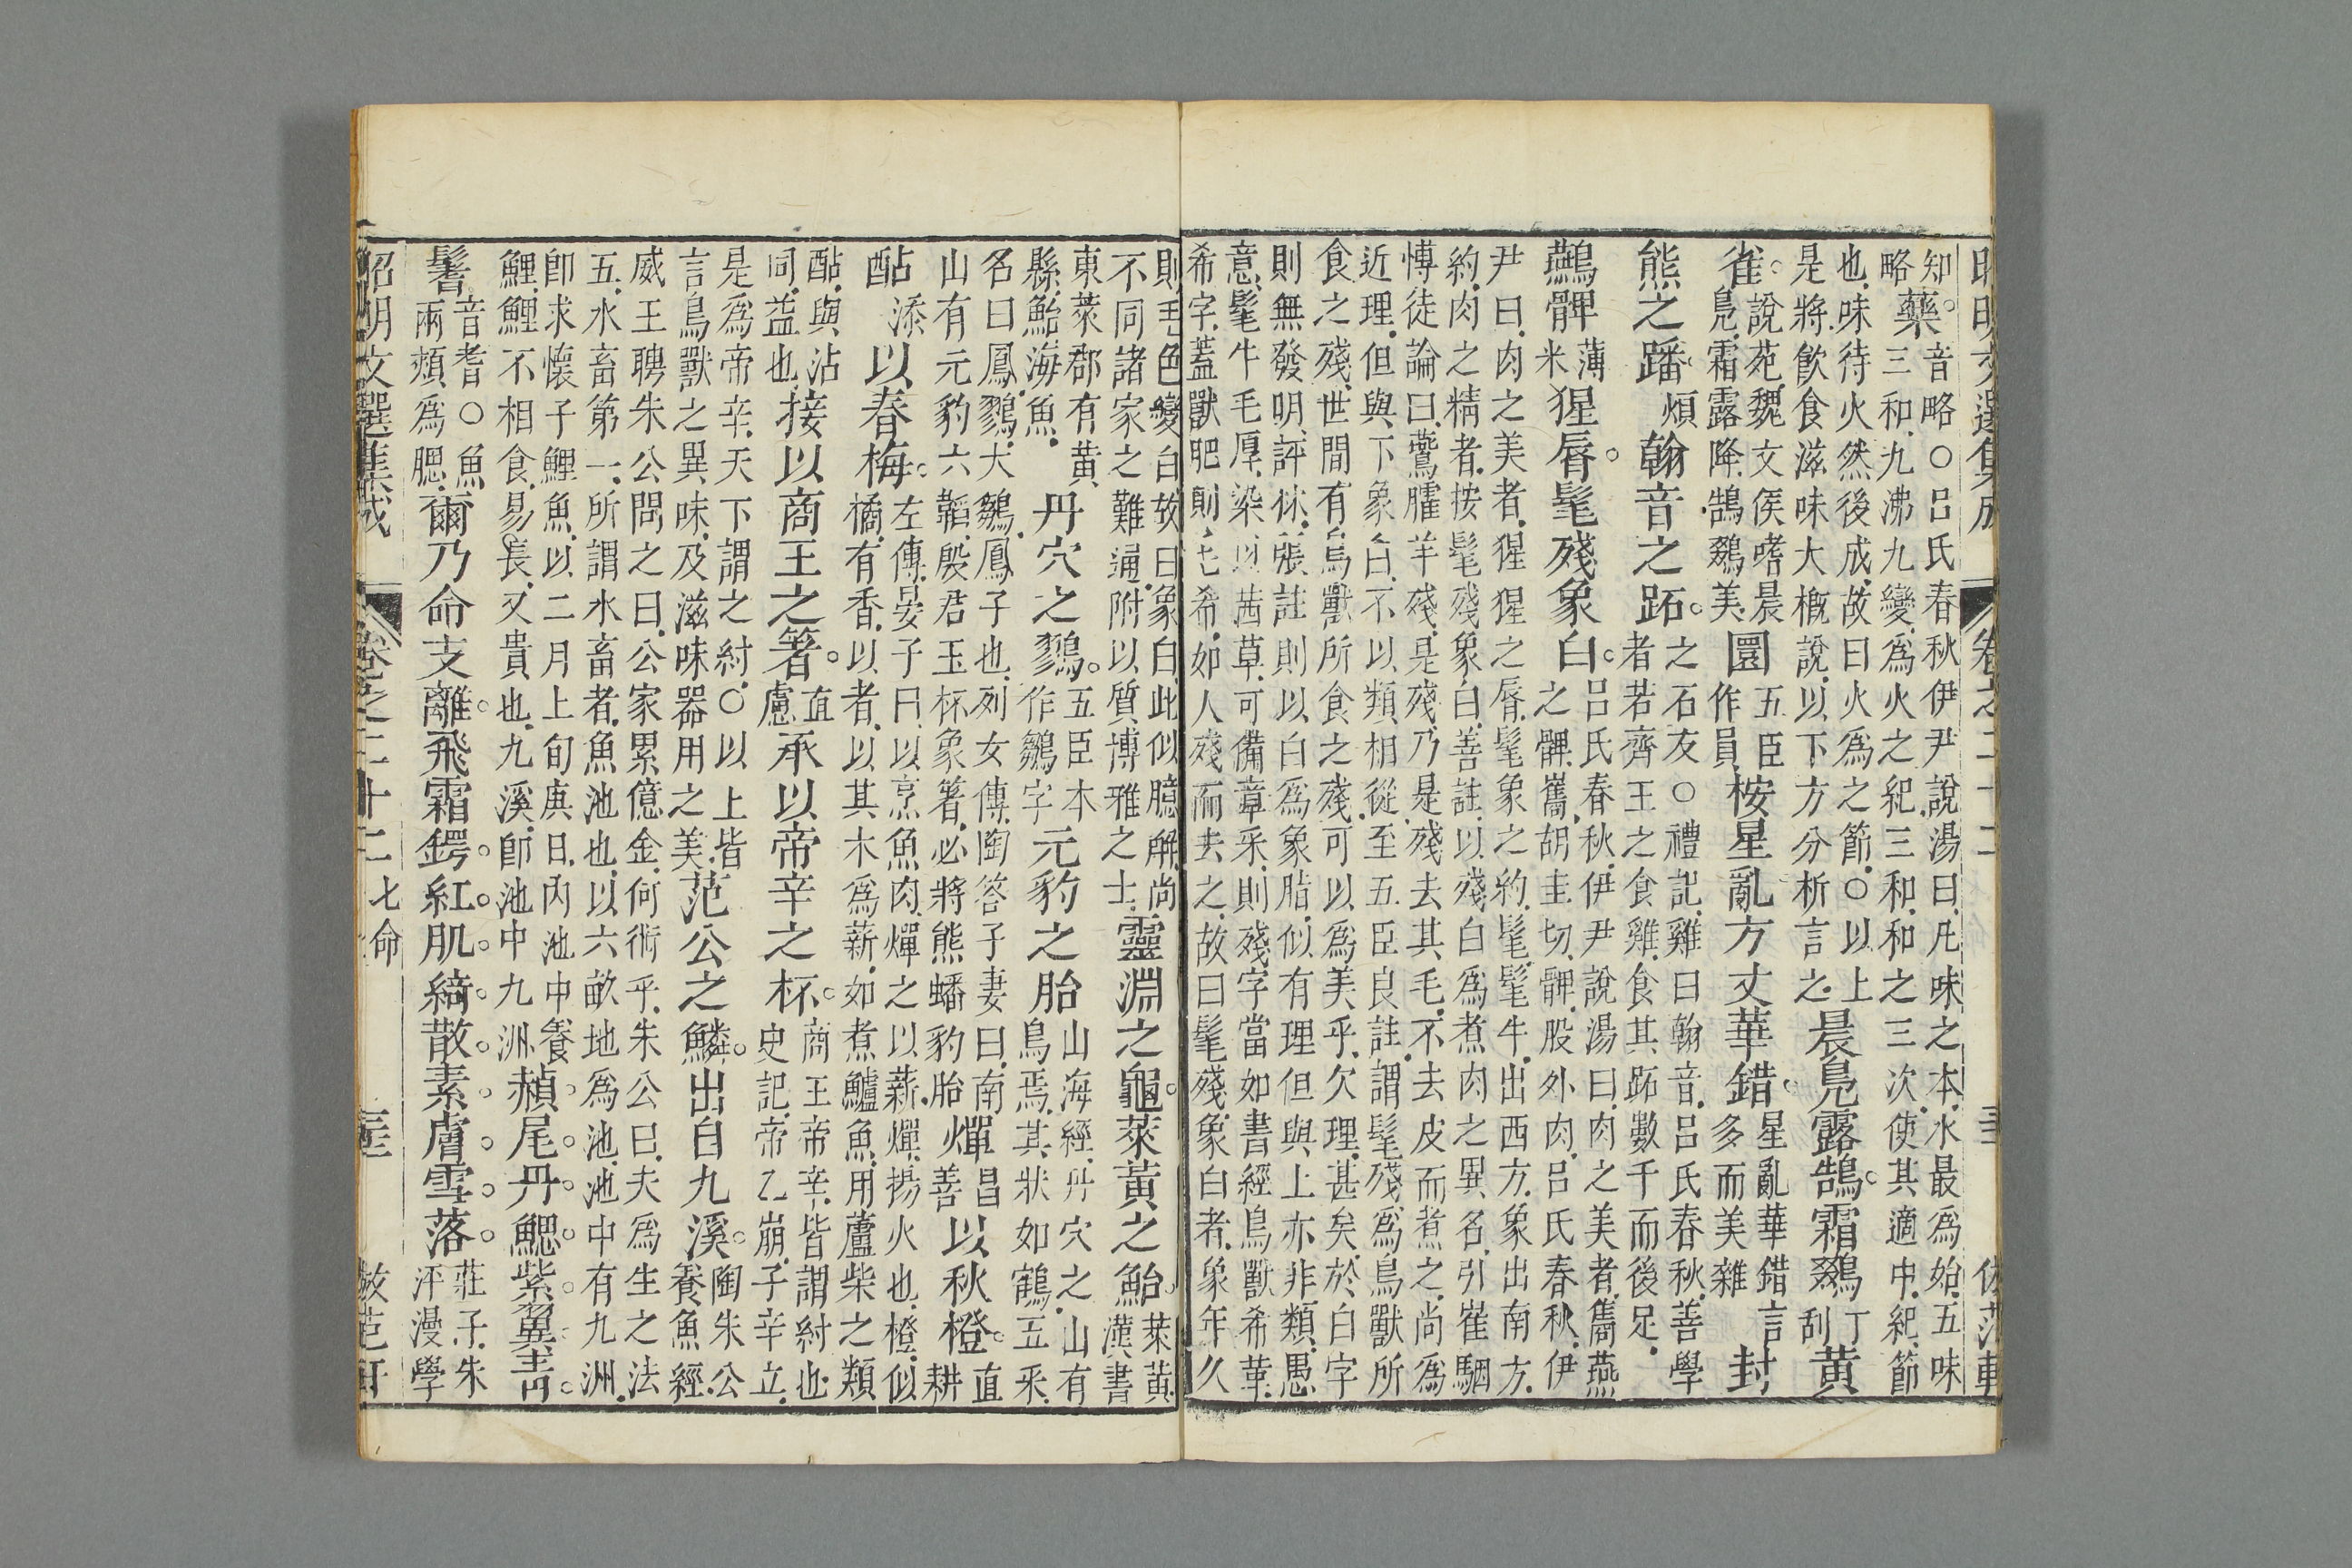 昭明文選集成 卷之二十二
知藥音略〇呂氏春秋伊尹說湯曰凡味之本水最為始五味
略三和九沸九變為火之紀三和和之三次使其適中紀節
也味待火然後成故曰火為之節〇以上
是將飲食滋味大概說以下方分析言之
晨鳧露鵠。霜鵽
丁刮
黃
雀。
說苑魏文侯嗜晨
鳧霜露降鵠鵽美
圜
五臣
作員
桉星亂方丈華錯。
星亂華錯言
多而美雜
封
熊之蹯
煩
翰音之跖。
之石友〇禮記雞曰翰音呂氏春秋善學
者若齊王之食雞食其跖數千而後足
鷰髀
薄
米
猩脣。髦殘象白。
呂氏春秋伊尹說湯曰肉之美者雋燕
之髀巂胡圭切髀股外肉呂氏春秋伊
尹曰肉之美者猩猩之脣髦象之約髦髦牛出西方象出南方
約肉之精者按髦殘象白善註以殘白為煮肉之異名引崔駰
博徒論曰鷰臛羊殘是殘乃是殘去其毛不去皮而煮之尚為
近理但與下象白不以類相從至五臣良註謂髦殘為鳥獸所
食之殘世間有鳥獸所食之殘可以為美乎欠理甚矣於白字
則無發明評林張註則以白為象脂似有理但與上亦非類愚
意髦牛毛厚染以茜草可備章采則殘字當如書經鳥獸希革
希字蓋獸肥則毛希如人殘而去之故曰髦殘象白者象年久
則毛色變白故曰象白此似臆解尚
不同諸家之難通附以質博雅之士
靈淵之龜。萊黃之鮐。
萊黃
漢書
東萊郡有黃
縣鮐海魚
丹穴之鷚。
五臣本
作鶵字
元豹之胎
山海經丹穴之山有
鳥焉其狀如鶴五采
名曰鳳鷚大鶵鳳子也列女傳陶答子妻曰南
山有元豹六韜殷君玉杯象箸必將熊蟠豹胎
燀
昌
善
以秋橙。
直
耕
酟
添
以春梅。
左傳晏子曰以烹魚肉燀之以薪燀揚火也橙似
橘有香以者以其木為薪如煮鱸魚用蘆柴之類
酟與沾
同益也
接以商王之箸。
直
慮
承以帝辛之杯。
商王帝辛皆謂紂也
史記帝乙崩子辛立
是為帝辛天下謂之紂〇以上皆
言鳥獸之異味及滋味器用之美
范公之鱗。出自九溪。
陶朱公
養魚經
威王聘朱公問之曰公家累億金何術乎朱公曰夫為生之法
五水畜第一所謂水畜者魚池也以六畝地為池池中有九洲
卽求懷子鯉魚以二月上旬庚日內池中養
鯉鯉不相食易長又貴也九溪卽池中九洲
赬尾丹鰓紫翼靑
鬐。
音耆〇魚
兩頰為腮
爾乃命支離。飛霜鍔。紅肌綺散。素膚雪落。
莊子朱
泙漫學
昭明文選集成 卷之二十二 七命